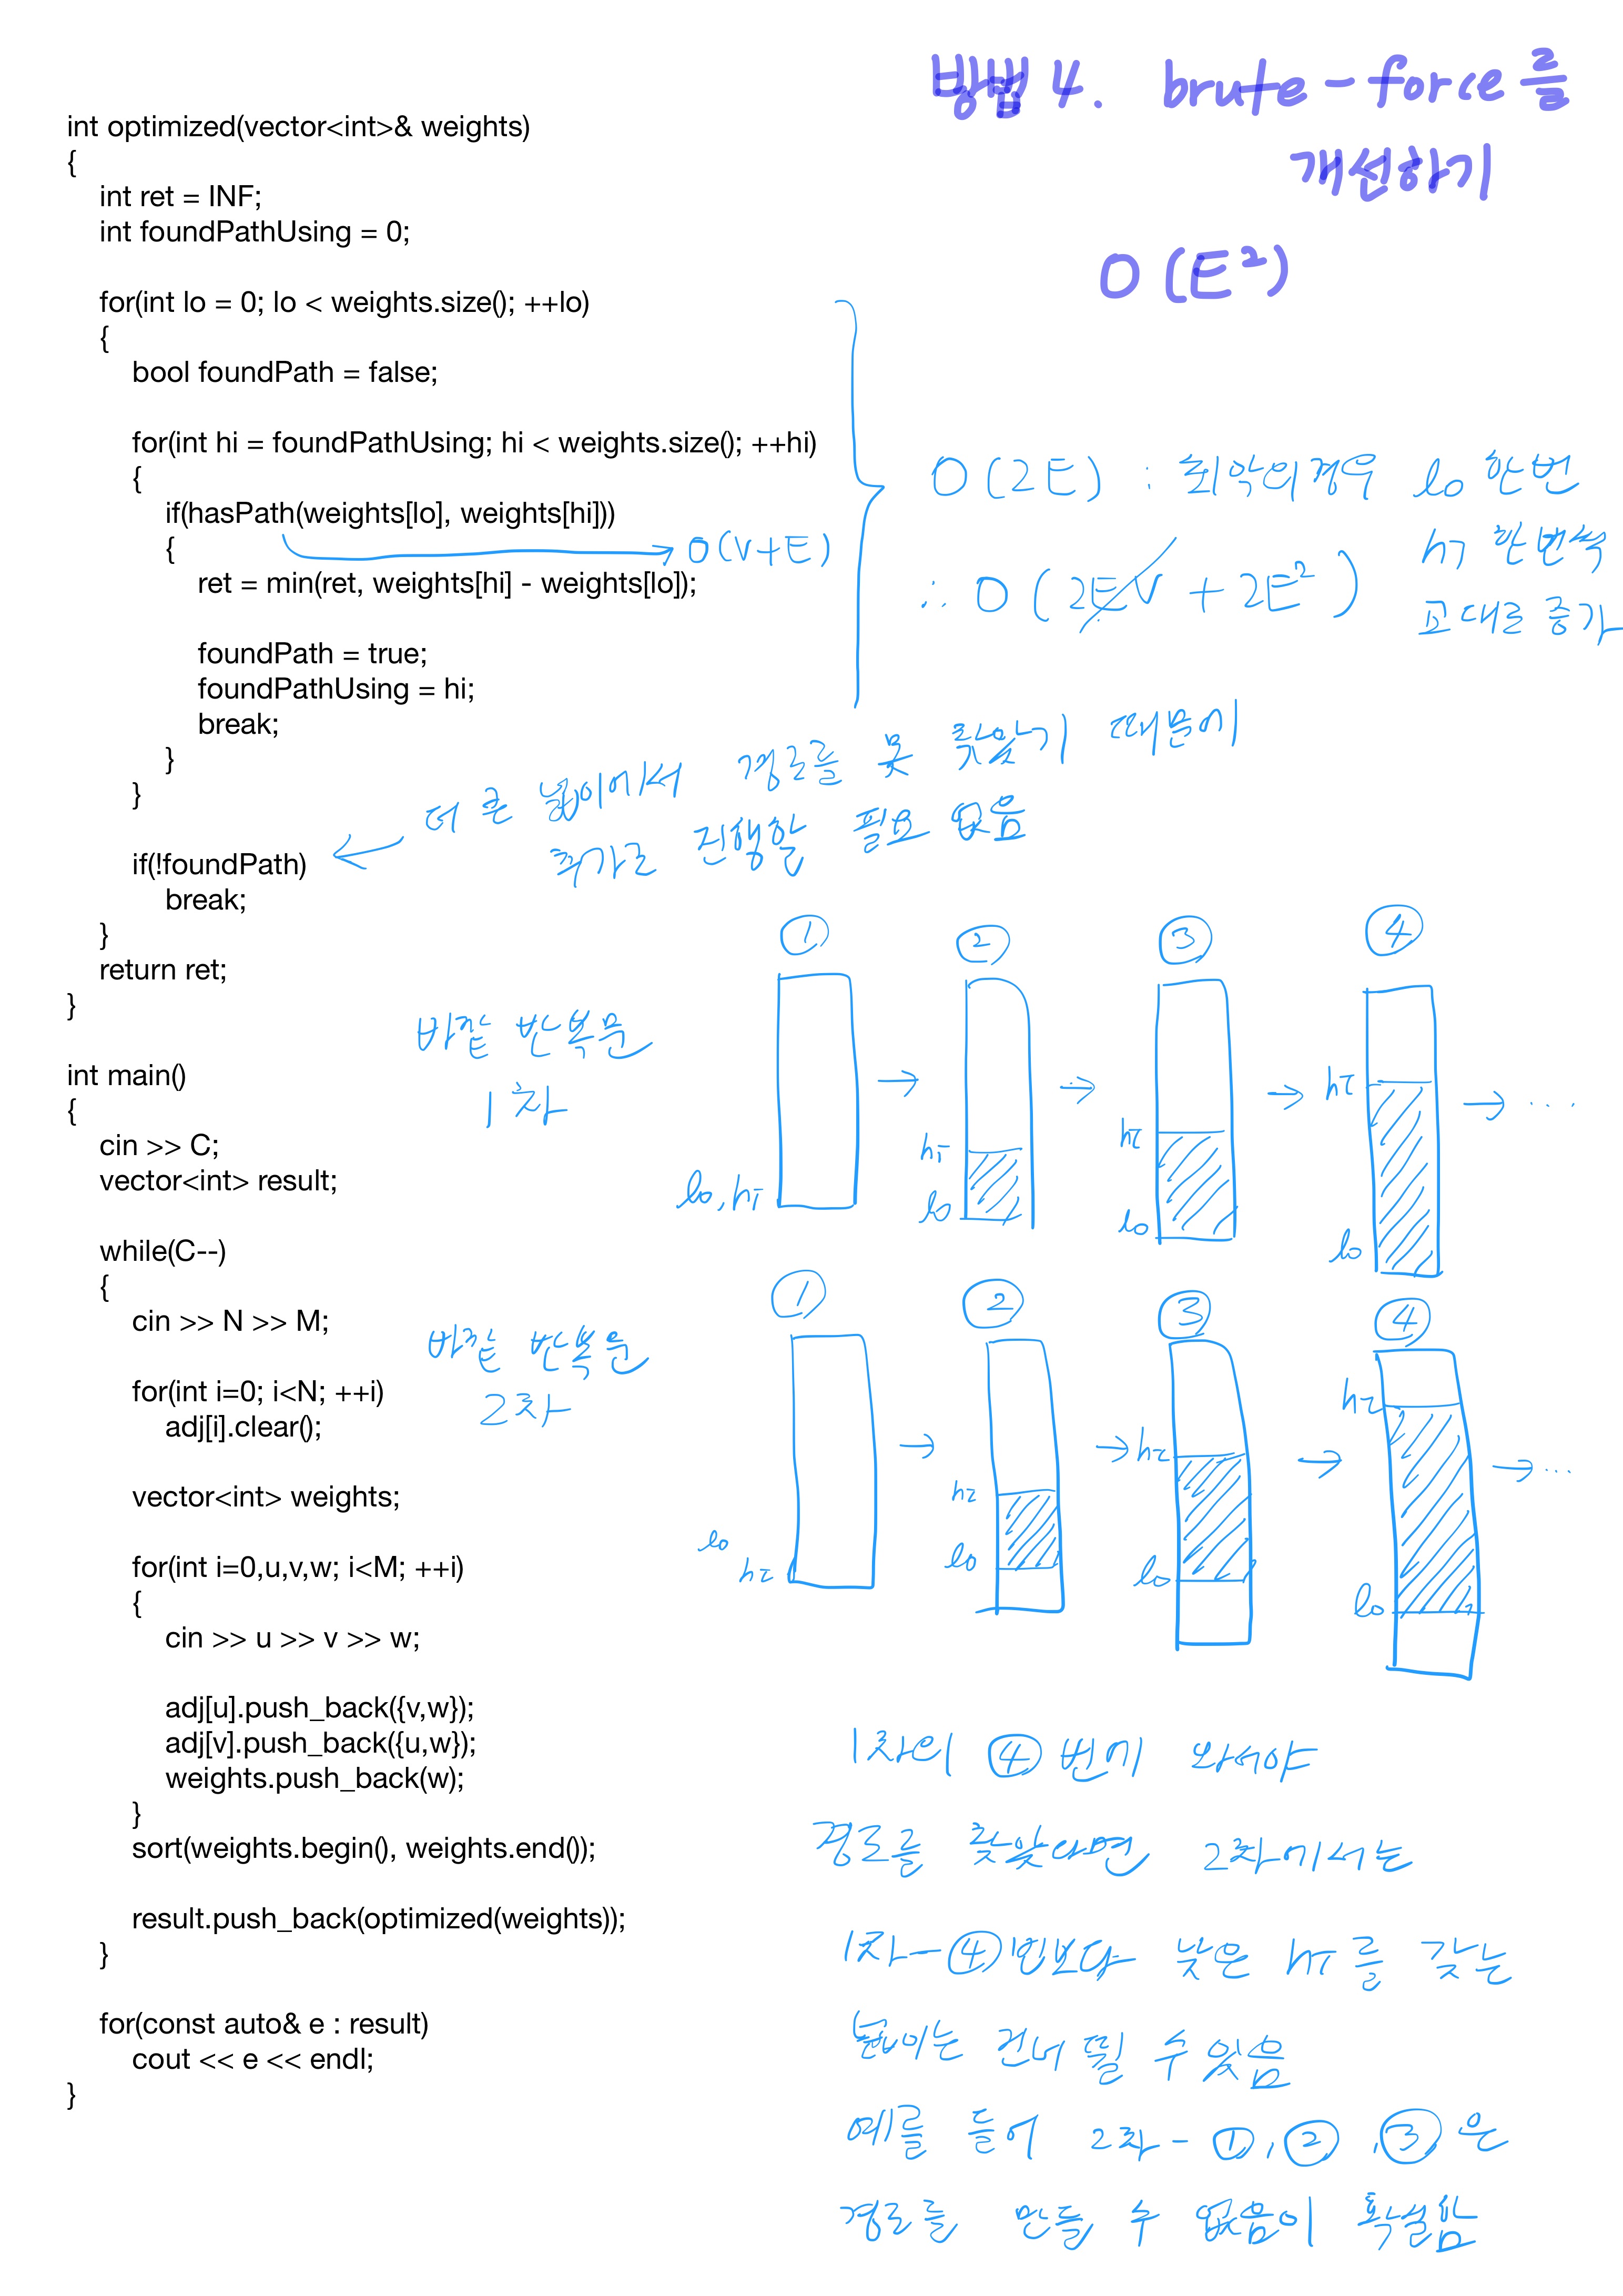 방법 4. brute-force를
개선하기
O(E²)
int optimized(vector<int>& weights)
{
int ret = INF;
int foundPathUsing = 0;
for(int lo = 0; lo < weights.size(); ++lo)
{
bool foundPath = false;
for(int hi = foundPathUsing; hi < weights.size(); ++hi)
{
if(hasPath(weights[lo], weights[hi]))
{
O(V+E)
ret = min(ret, weights[hi] - weights[lo]);
foundPath = true;
foundPathUsing = hi;
break;
}
}
if(!foundPath)
break;
}
return ret;
}
O(2E) : 최악의 경우 lo 한번
hi 한번씩
교대로 증가
∴ O(2EV + 2E²)
더 큰 높이에서 경로를 못 찾았기 때문에
추가로 진행할 필요 없음
int main()
{
cin >> C;
vector<int> result;
while(C--)
{
cin >> N >> M;
for(int i=0; i<N; ++i)
adj[i].clear();
vector<int> weights;
for(int i=0,u,v,w; i<M; ++i)
{
cin >> u >> v >> w;
adj[u].push_back({v,w});
adj[v].push_back({u,w});
weights.push_back(w);
}
sort(weights.begin(), weights.end());
result.push_back(optimized(weights));
}
for(const auto& e : result)
cout << e << endl;
}
바깥 반복문
1차
① ② ③ ④
lo, hi
hi
lo
hi
lo
hi
lo
→ → → → ...
바깥 반복문
2차
① ② ③ ④
lo
hi
hi
lo
hi
lo
hi
lo
→ → → → ...
1차의 ④ 번에 와서야
경로를 찾았다면 2차에서는
1차-④번보다 낮은 hi를 갖는
높이는 건너 뛸 수 있음
예를 들어 2차-①,②,③은
경로를 만들 수 없음이 확실함